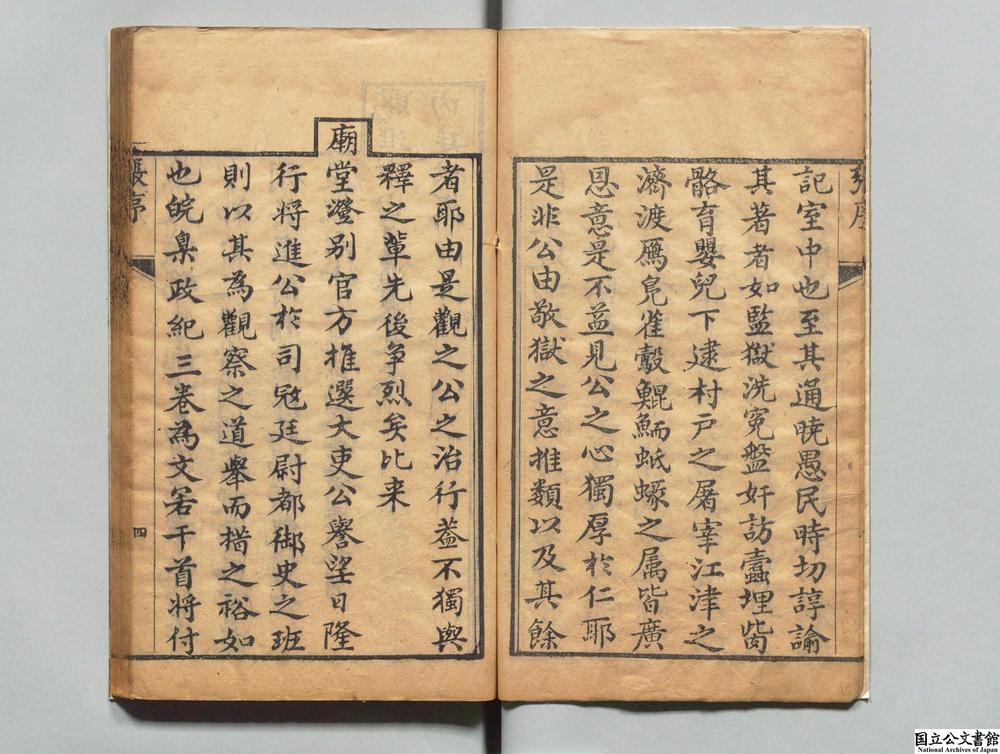 記室中也至其通曉愚民時切諄諭
其著者如監獄洗冤盤奸訪蠹埋胔
骼育嬰兒下逮村戶之屠宰江津之
濟渡鴈鳬雀鷇鯤鮞蚳蝝之属皆廣
恩意是不益見公之心獨厚於仁耶
是非公由敬獄之意推類以及其餘
者耶由是觀之公之治行葢不獨與
釋之輩先後爭烈矣比来
廟堂澄别官方推選大吏公譽望日隆
行將進公於司冦廷尉都御史之班
則以其為觀察之道舉而措之裕如
也皖臬政紀三卷為文若干首將付
張序
四
国立公文書館
National Archives of Japan